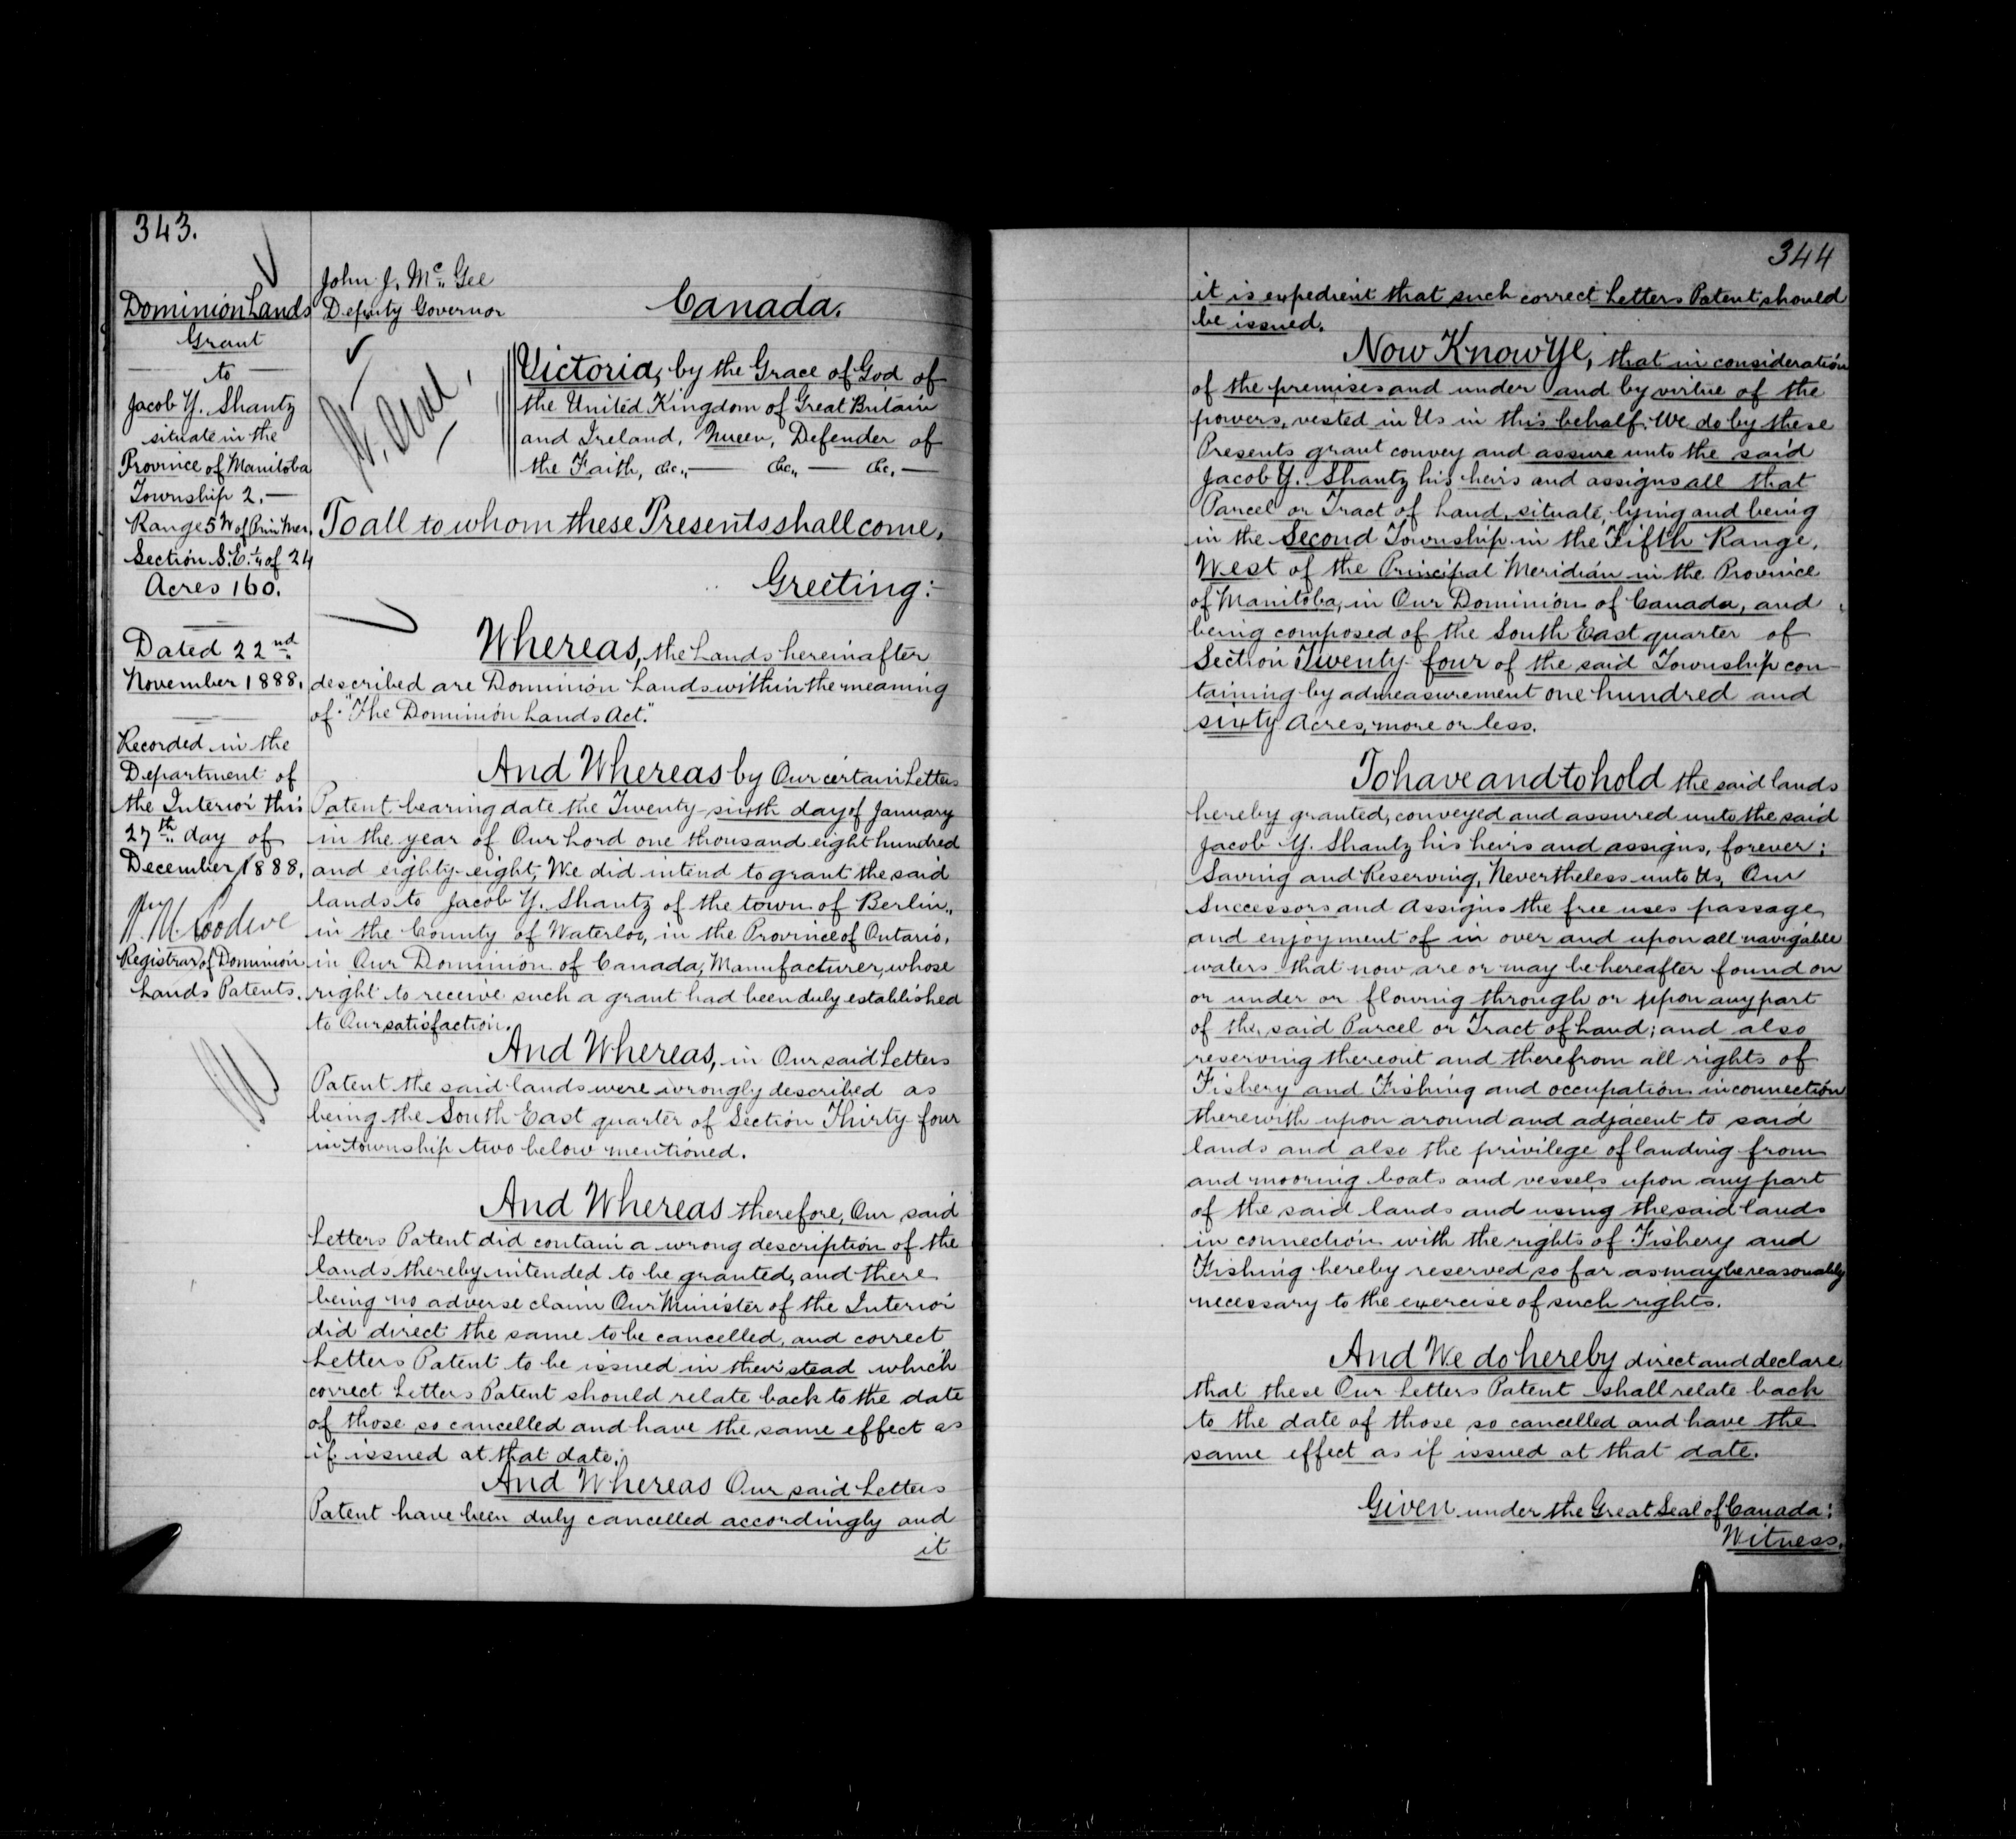 343.
Dominion Lands
Grant
to
Jacob Y. Shantz
situate in the
Province of Manitoba
Township 2.—
Range 5 W of Prin. Mer.
Section S.E.¼ of 24
Acres 160.
Dated 22nd
November 1888.
Recorded in the
Department of
the Interior this
27th day of
December 1888.
Registrar of Dominion
Lands Patents.
John J. McGee
Deputy Governor
Canada.
Victoria, by the Grace of God of
the United Kingdom of Great Britain
and Ireland, Queen, Defender of
the Faith, &c.,— &c.,— &c.,—
To all to whom these Presents shall come,
Greeting:—
Whereas, the Lands hereinafter
described are Dominion Lands within the meaning
of "The Dominion Lands Act."
And Whereas by Our certain Letters
Patent bearing date the Twenty-sixth day of January
in the year of Our Lord one thousand eight hundred
and eighty-eight, We did intend to grant the said
lands to Jacob Y. Shantz of the town of Berlin,,
in the County of Waterloo, in the Province of Ontario,
in Our Dominion of Canada, Manufacturer, whose
right to receive such a grant had been duly established
to Our satisfaction.
And Whereas, in Our said Letters
Patent the said lands were wrongly described as
being the South East quarter of Section Thirty-four
in township two below mentioned.
And Whereas therefore, Our said
Letters Patent did contain a wrong description of the
lands thereby intended to be granted, and there
being no adverse claim Our Minister of the Interior
did direct the same to be cancelled, and correct
Letters Patent to be issued in their stead which
correct Letters Patent should relate back to the date
of those so cancelled and have the same effect as
if issued at that date;
And Whereas Our said Letters
Patent have been duly cancelled accordingly and
it
344
it is expedient that such correct Letters Patent should
be issued.
Now Know Ye, that in consideration
of the premises and under and by virtue of the
powers, vested in Us in this behalf. We do by these
Presents grant convey and assure unto the said
Jacob Y. Shantz his heirs and assigns all that
Parcel or Tract of Land, situate, lying and being
in the Second Township in the Fifth Range,
West of the Principal Meridian in the Province
of Manitoba, in Our Dominion of Canada, and
being composed of the South East quarter of
Section Twenty-four of the said Township con-
taining by admeasurement one hundred and
sixty Acres, more or less.
To have and to hold the said lands
hereby granted, conveyed and assured unto the said
Jacob Y. Shantz his heirs and assigns, forever;
Saving and Reserving, Nevertheless unto Us, Our
Successors and Assigns the free uses passage
and enjoyment of in over and upon all navigable
waters that now are or may be hereafter found on
or under or flowing through or upon any part
of the said Parcel or Tract of Land; and also
reserving thereout and therefrom all rights of
Fishery and Fishing and occupation in connection
therewith upon around and adjacent to said
lands and also the privilege of landing from
and mooring boats and vessels upon any part
of the said lands and using the said lands
in connection with the rights of Fishery and
Fishing hereby reserved so far as may be reasonably
necessary to the exercise of such rights.
And We do hereby direct and declare
that these Our Letters Patent shall relate back
to the date of those so cancelled and have the
same effect as if issued at that date.
Given under the Great Seal of Canada:
Witness.